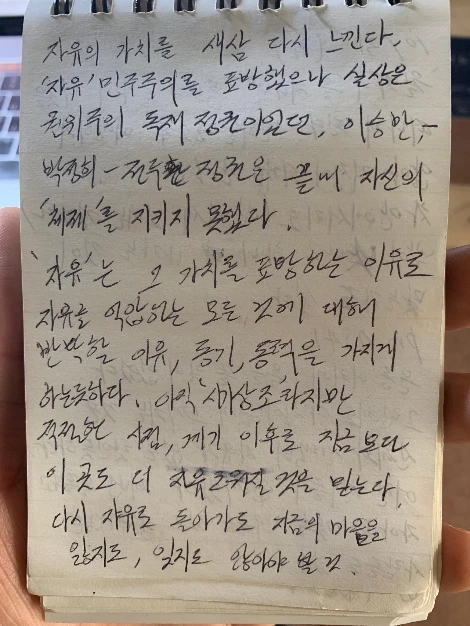 자유의 가치를 새삼 다시 느낀다.
'자유' 민주주의를 표방했으나 실상은
권위주의 독재 정권이었던, 이승만,-
박정희-전두환 정권은 끝내 자신의
'체제'를 지키지 못했다.
'자유'는 그 가치를 표방하는 이유로
자유를 억압하는 모든 것에 대해
반박할 이유, 동기, 동력을 가지게
하는듯하다. 아직 '시기상조'라지만
적절한 시점, 계기 이후로 지금보다
이 곳도 더 자유로워질 것을 믿는다.
다시 자유로 돌아가도 지금의 마음을
잃지도, 잊지도 않아야 할 것.